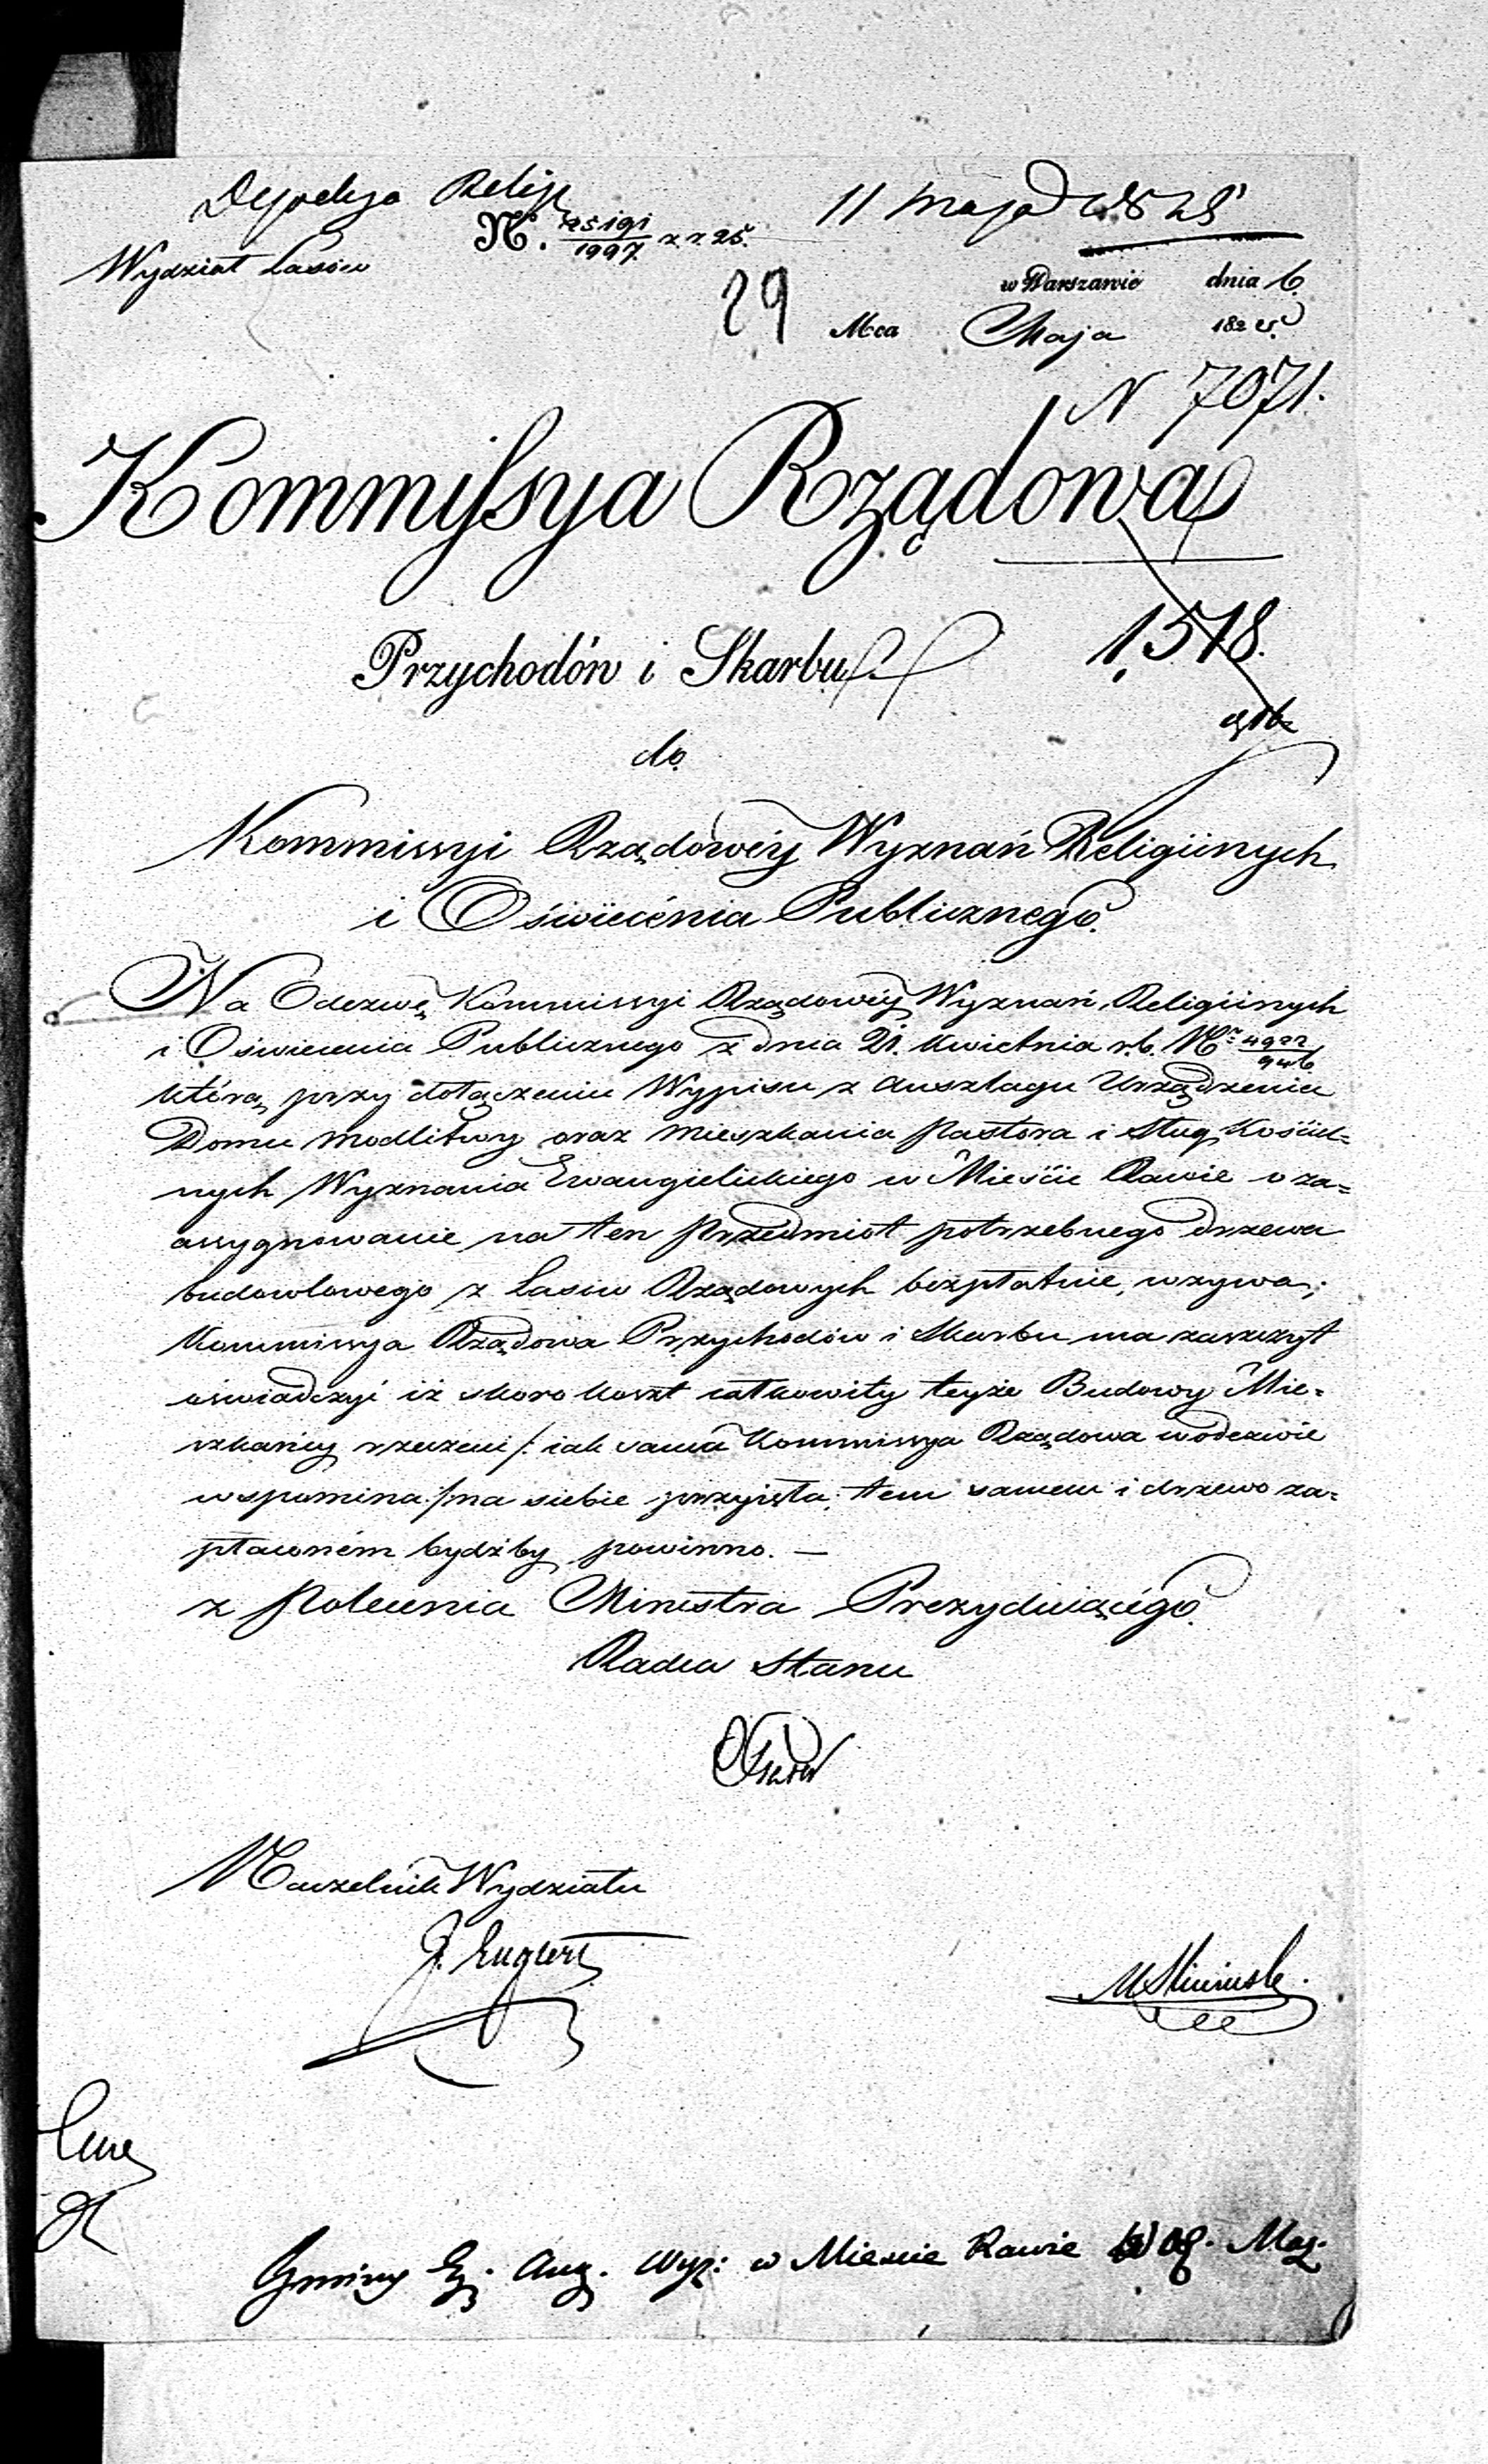 Wydział Lasów
N. 25191/1997 z r 25.
11 Maja 1828
29
w Warszawie dnia 6.
Mca Maja 1828
N 7071.
Kommissya Rządowa
Przychodów i Skarbu
1,518.
do
Kommissyi Rządowéy Wyznań Religiinych
i Oświécenia Publicznego.
Na Odezwę Kommissyi Rządowéy Wyznań Religiinych
i Oświecenia Publicznego z dnia 21. Kwietnia r.b. Nr 4922/946
którą przy dołączeniu Wypisu z Anszlagu Urządzenia
Domu modlitwy oraz mieszkania Pastora i Sług Kościel=
nych Wyznania Ewangielickiego w Mieście Rawie o za=
assygnowanie na ten przedmiot potrzebnego drzewa
budowlowego z Lasów Rządowych bezpłatnie, wzywa;
Kommissya Rządowa Przychodów i Skarbu ma zaszczyt
oświadczyć iż skoro koszt całkowity teyże Budowy Mie=
szkańcy rzeczeni /: iak sama Kommissya Rządowa w odezwie
wspomina :/ na siebie przyięła, tem samem i drzewo za=
płaconém bydźby powinno. —
z Polecenia Ministra Prezyduiącégo.
Radca Stanu
Naczelnik Wydziału
J. Englert
Gminy Ew. Aug. Wyz: w Mieście Rawie W Ob. Maz.